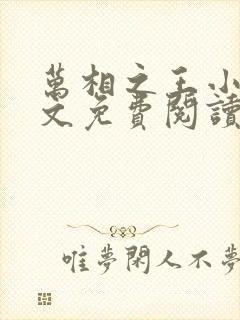 萬相之王小
文免費閱讀
唯夢閑人不夢